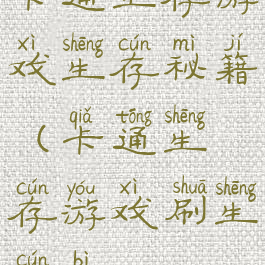 卡通生存游
xì shēng cún mì jí
戏生存秘籍
qiǎ tōng shēng
(卡通生
cún yóu xì shuā shēng
存游戏刷生
cún bì